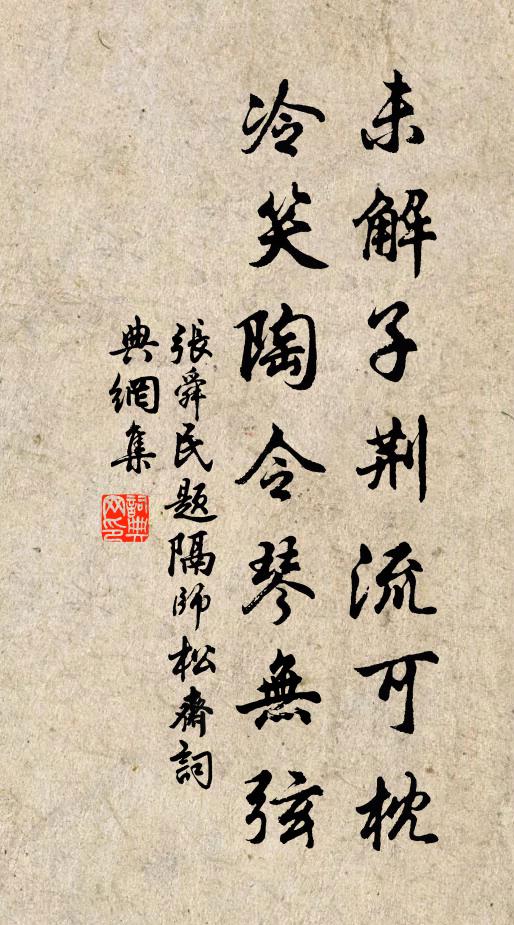 未解子荆流可枕
冷笑陶令琴無弦
張舜民題隔師松齋詞
典網集
詞典網印